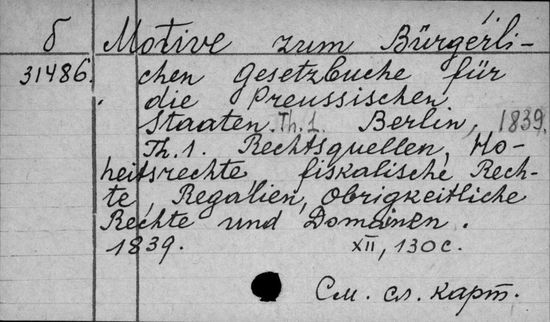 б Motive zum Bürgerli-
31486. chen Gesetzbuche für
die Preussischen
Staaten. Th. 1. Berlin, 1839.
Th. 1. Rechtsquellen, Ho-
heitsrechte, fiskalische Rech-
te, Regalien, obrigkeitliche
Rechte und Domainen.
1839. XII, 130 с.
См. сл. карт.